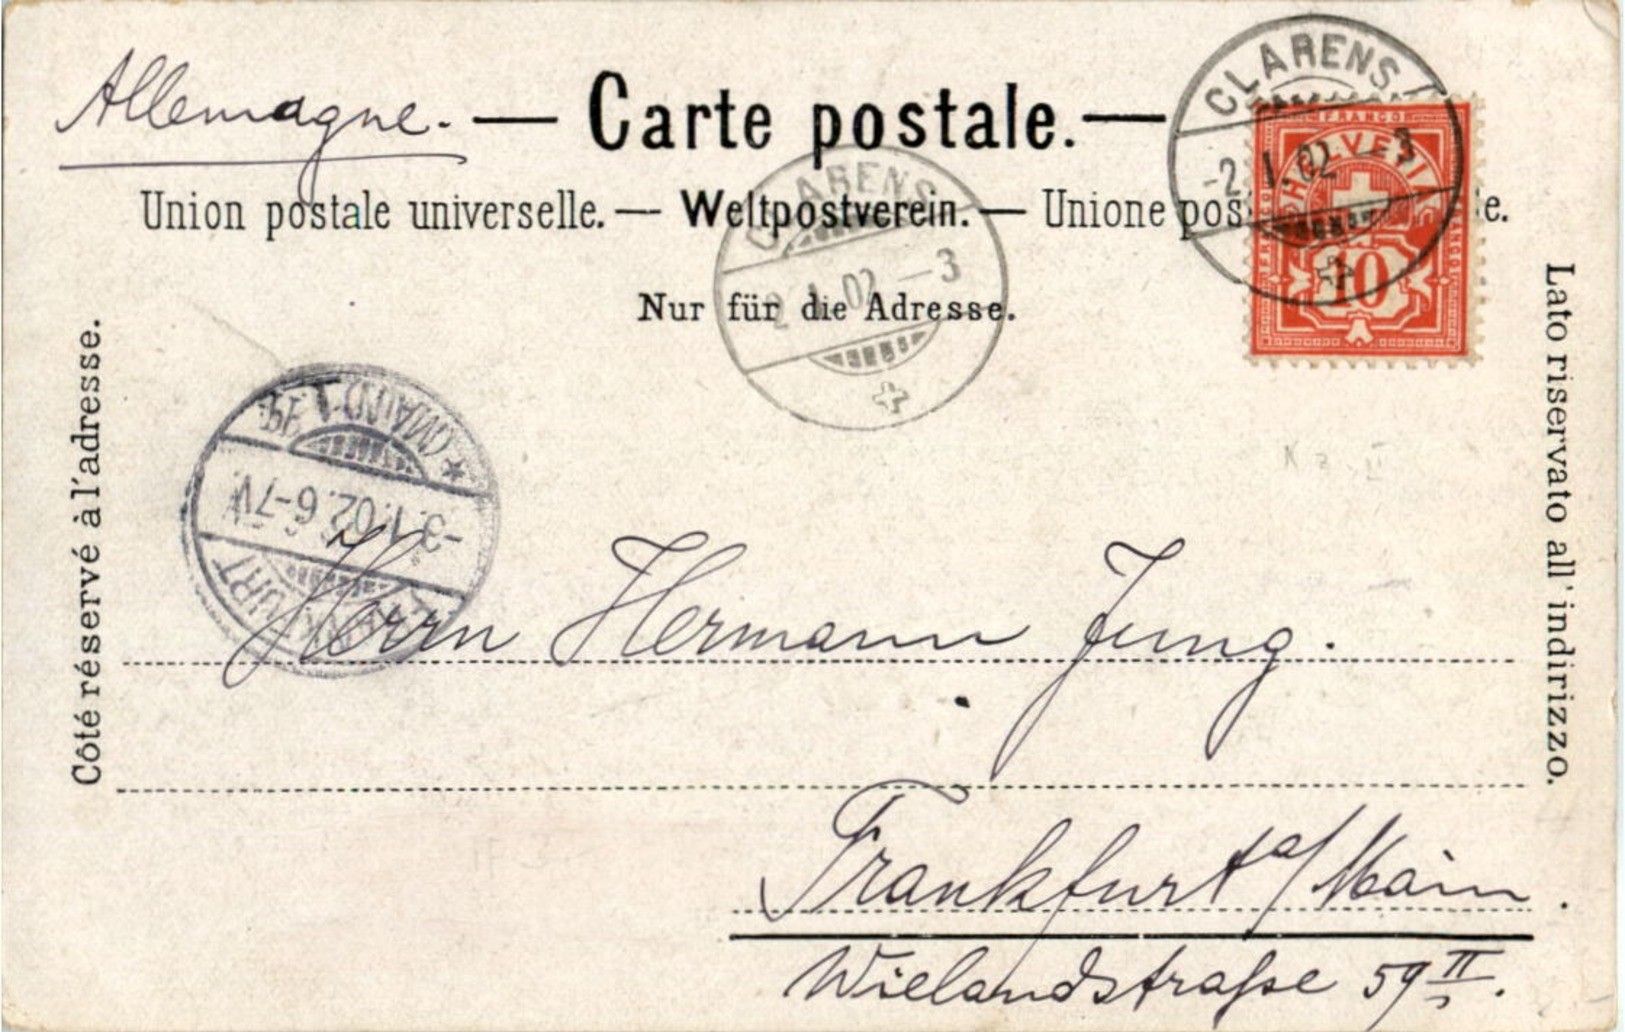 Allemagne. — Carte postale. —
Union postale universelle. — Weltpostverein. — Unione pos e.
Nur für die Adresse.
Côté réservé à l'adresse.
Lato riservato all'indirizzo.
CLARENS
-2.I.02 —3
FRANCO
HELVETIA
10
CLARENS
2.I.02 —3
FRANKFURT
-3.1.02.6-7V
(MAIN) 1
Herrn Hermann Jung.
Frankfurt a/Main.
Wielandstraße 59 II.